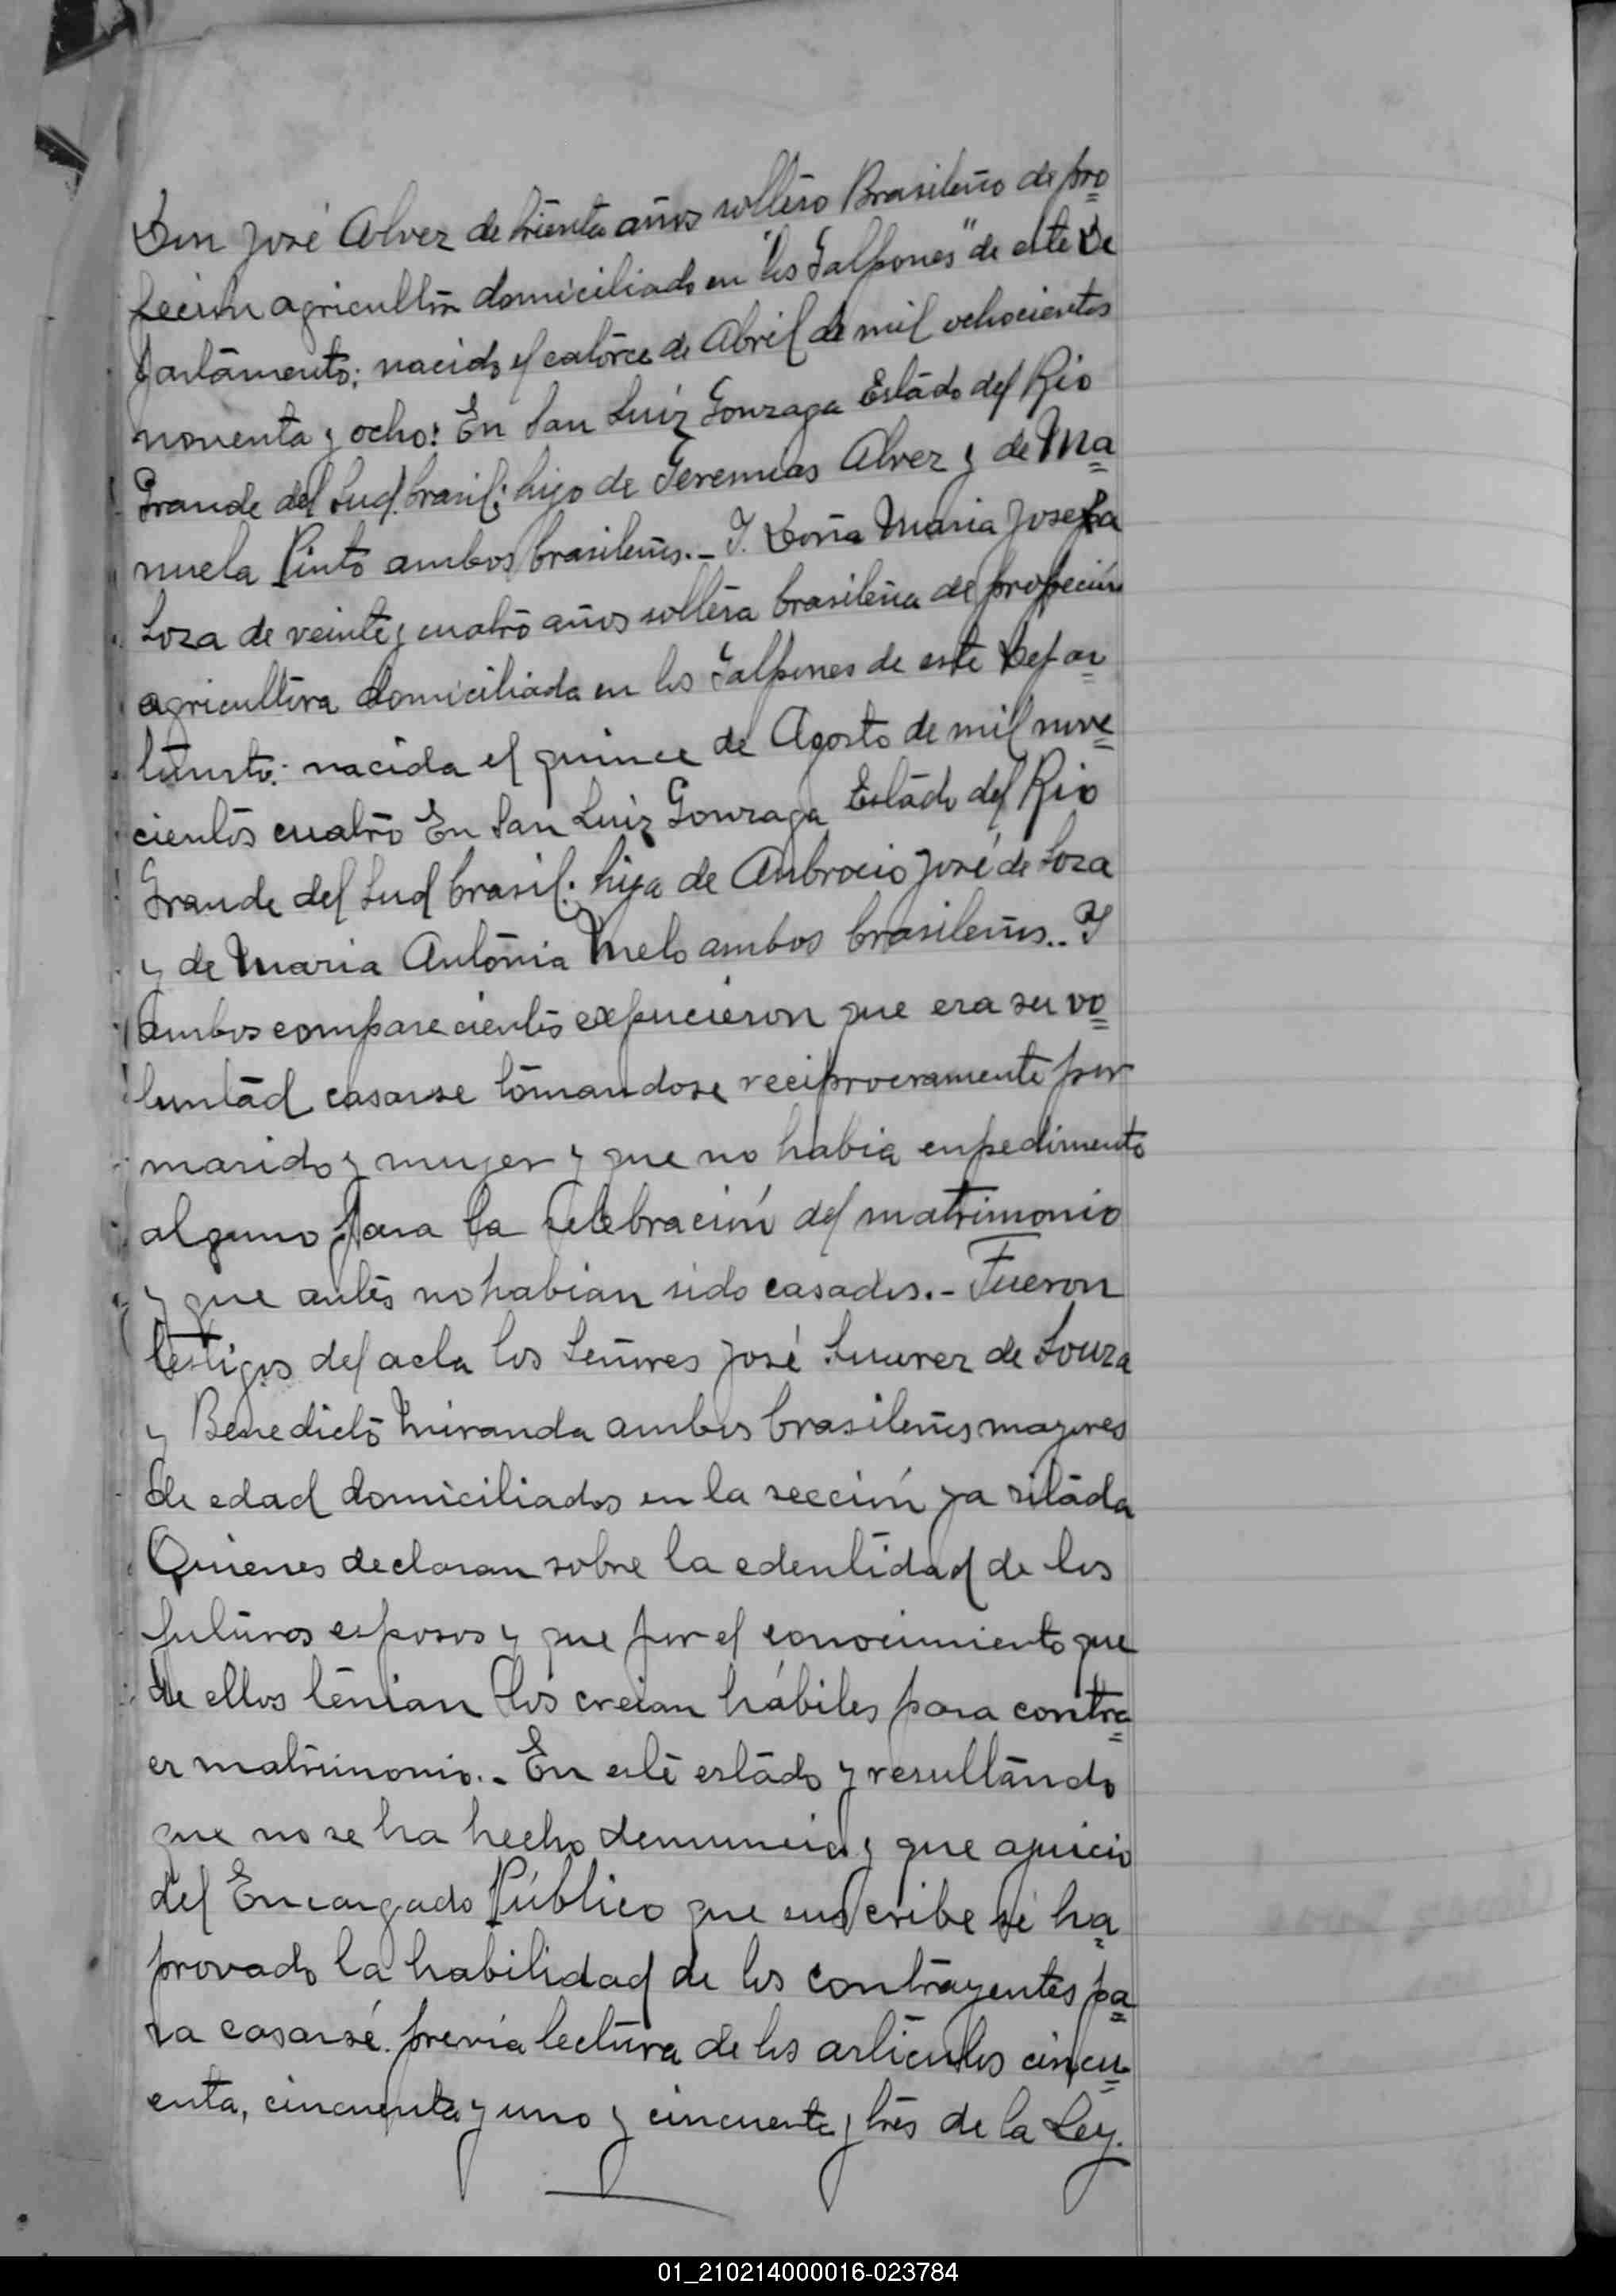 Don José Alvez de treinta años soltero Brasileño de pro
fecion agricultor domiciliado en "los Galpones" de este De
partamento; nacido el catorce de Abril de mil ochocientos
noventa y ocho: En San Luiz Gonzaga Estado del Rio
Grande del Sud. brasil: hijo de Jeremias Alvez y de Ma
nuela Pinto ambos brasileños.- Y. Doña Maria Josefa
Loza de veinte y cuatro años soltera brasileña de profecion
agricultora domiciliada en los Galpones de este Depar
tamento: nacida el quince de Agosto de mil nove
cientos cuatro En San Luiz Gonzaga Estado del Rio
Grande del Sud brasil: hija de Anbrocio José de Loza
y de Maria Antonia Melo ambos brasileños.. Y
ambos comparecientes expucieron que era su vo
luntad casarse tomandose reciprocramente por
marido y mujer y que no habia enpedimento
alguno para la selebración del matrimonio
y que antes no habian sido casados.- Fueron
testigos del acta los Señores José Suarez de Souza
y Benedicto Miranda ambos brasileños mayores
de edad domiciliados en la sección ya sitada
Quienes declaran sobre la edentidad de los
futuros esposos y que por el conocimiento que
de ellos tenian los creian hábiles para contra
er matrimonio.- En este estado y resultando
que no se ha hecho denuncia y que ajuicio
del Encargado Público que suscribe se ha
provado la habilidad de los contrayentes pa
ra casarsé. previa lectura de los articulos cincu
enta, cincuenta y uno y cincuenta y tres de la Ley.
01_210214000016-023784